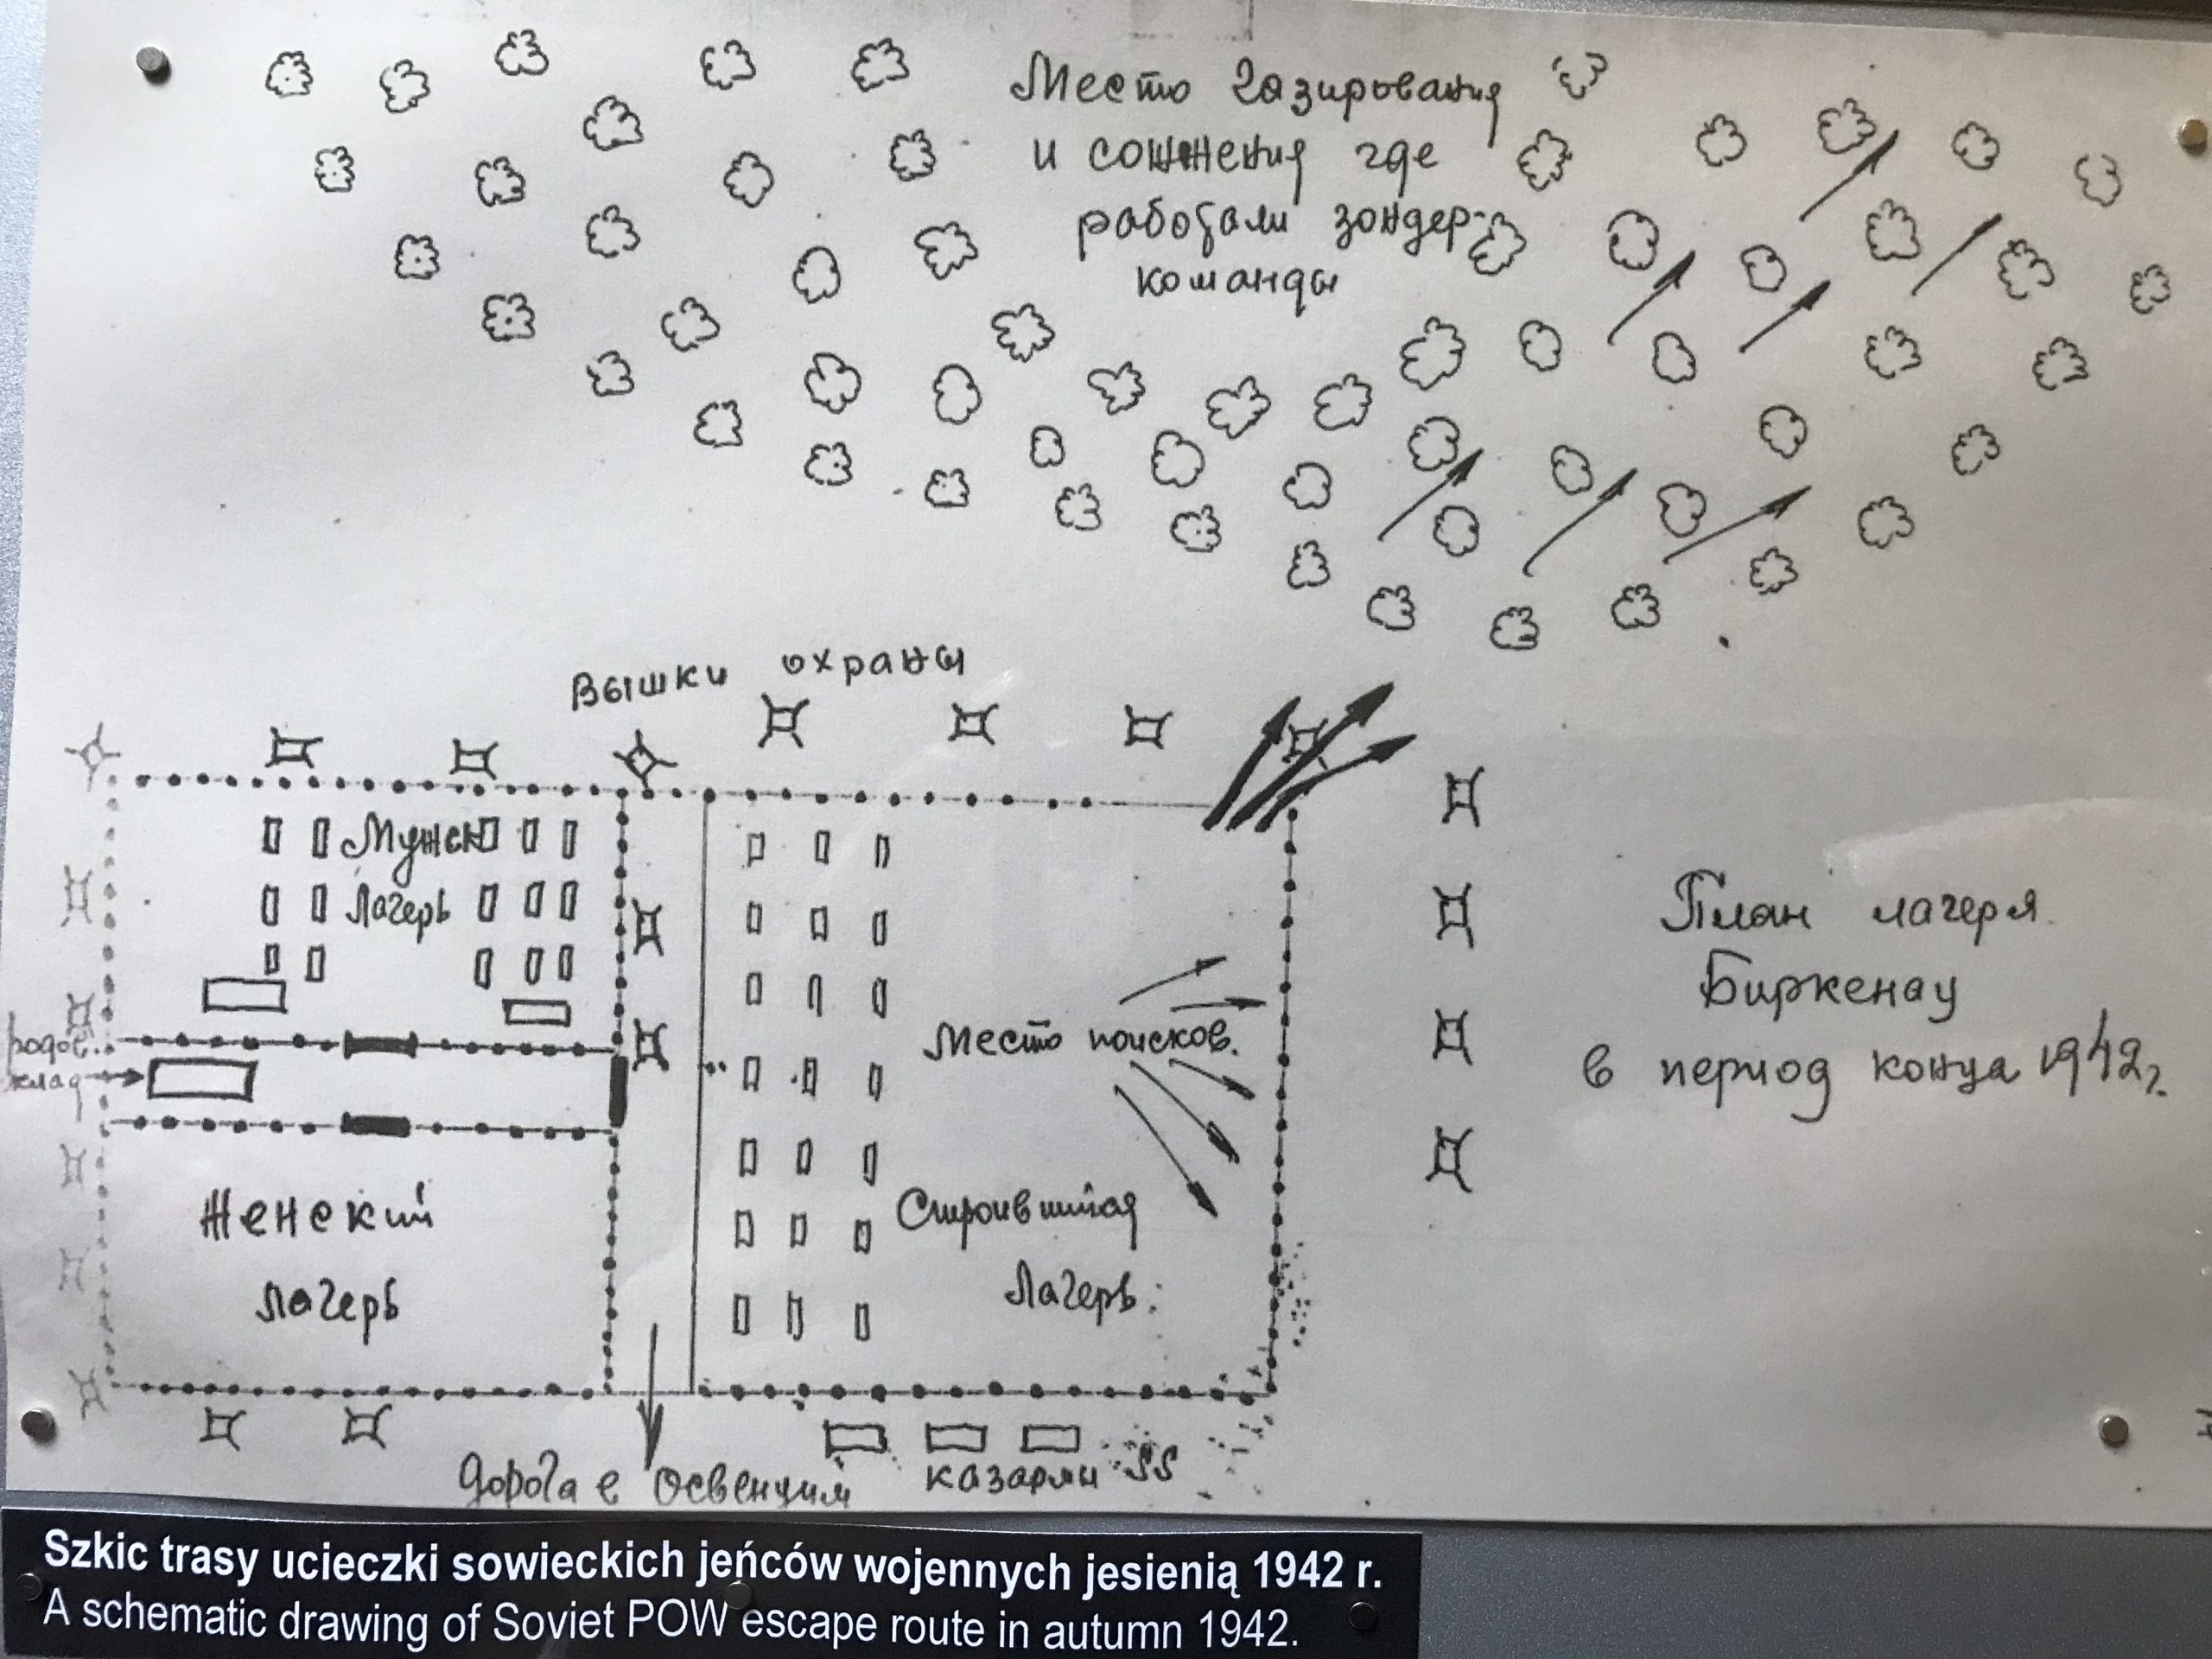 Место газирования
и сожжения где
работали зондер-
команды
Вышки охраны
Мужск
Лагерь
План лагеря
Биркенау
в период конца 1942г.
Место поисков.
Женский
лагерь
Строившийся
Лагерь.
казармы SS
дорога в Освенцим
Szkic trasy ucieczki sowieckich jeńców wojennych jesienią 1942 r.
A schematic drawing of Soviet POW escape route in autumn 1942.